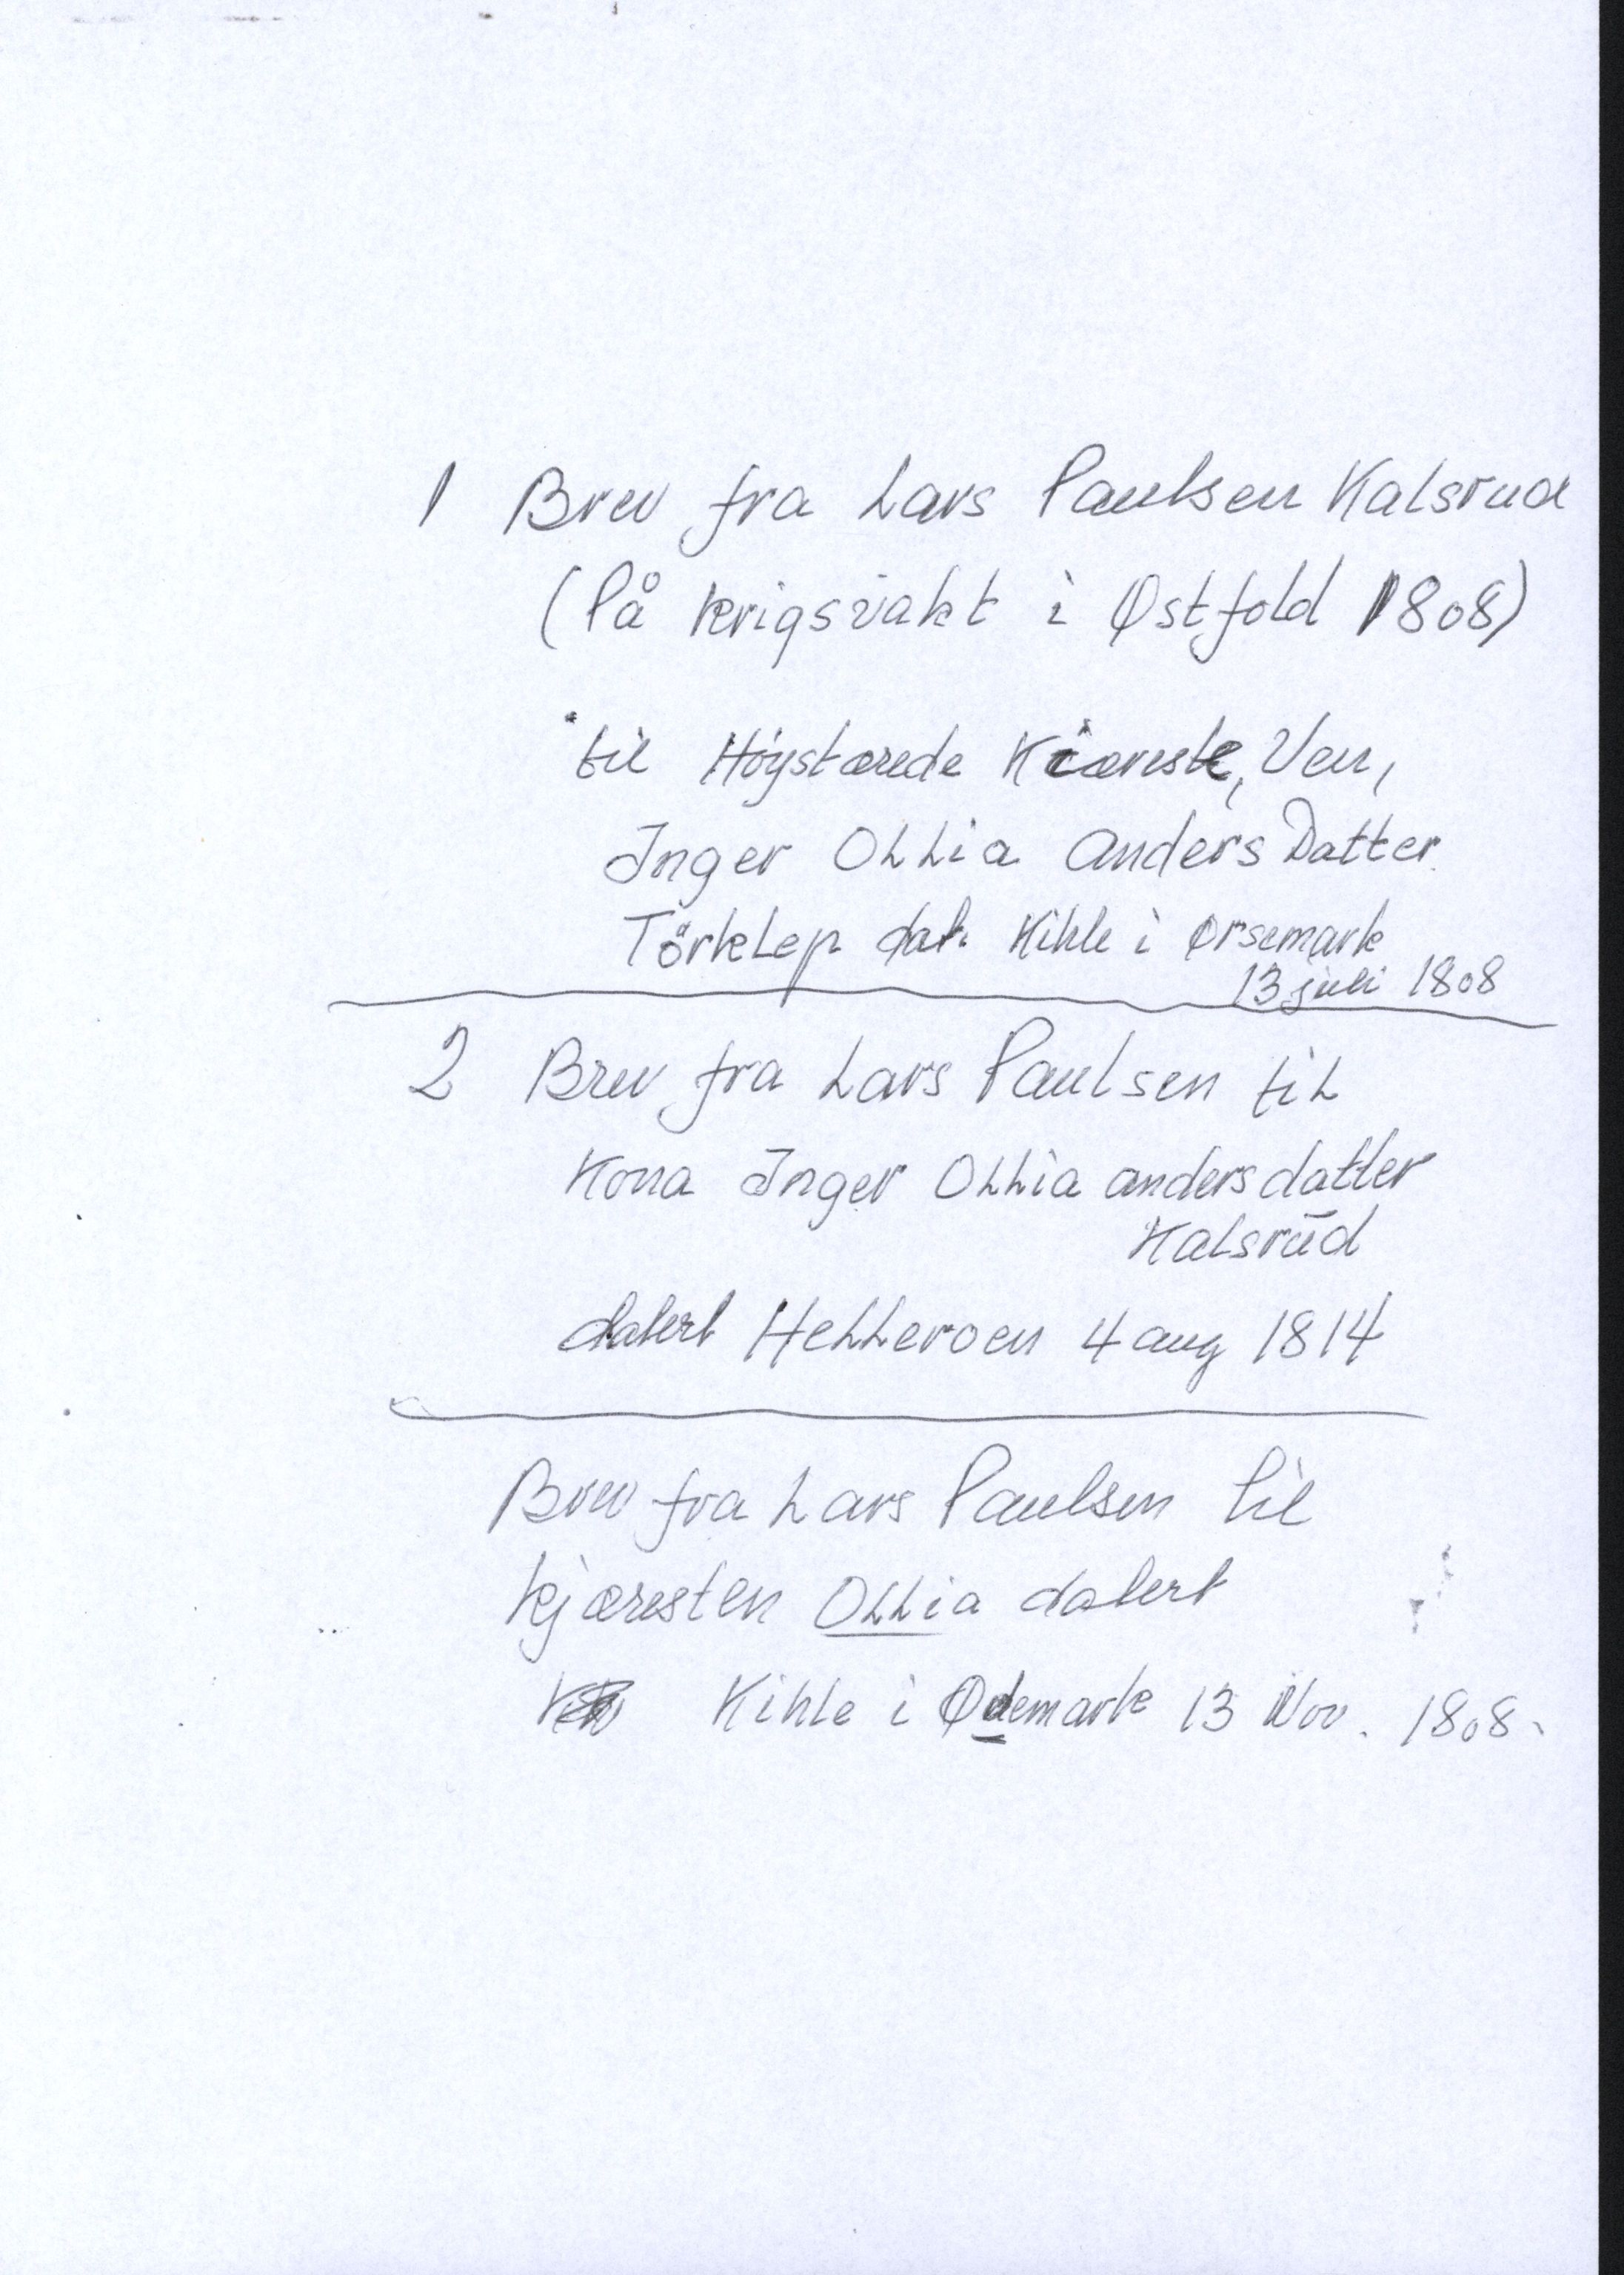 1 Brev fra Lars Paulsen Kalsrud
(På krigsvakt i Østfold 1808)
til Höystærede Kiæreste, Ven,
Inger Ollia Anders Datter
Törklep dat. Kihle i Ørsemark
13 juli 1808
2 Brev fra Lars Paulsen til
Kona Inger Ollia andersdatter
Kalsrūd
datert Helleroen 4 aug 1814
Brev fra Lars Paulsen til
kjæresten Ollia datert
Kihle i Ødemark 13 Nov. 1808.